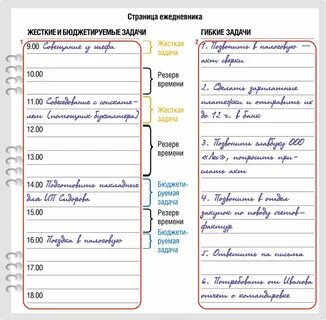 Страница ежедневника
ЖЕСТКИЕ И БЮДЖЕТИРУЕМЫЕ ЗАДАЧИ
ГИБКИЕ ЗАДАЧИ
1
9.00 Совещание у шефа
Жесткая
задача
10.00
Резерв
времени
11.00 Собеседование с соискате-
лем (помощник бухгалтера)
Жесткая
задача
12.00
13.00
Резерв
времени
14.00 Подготовить накладные
для ИП Сидорова
Бюджети-
руемая
задача
15.00
Резерв
времени
16.00 Поездка в налоговую
Бюджети-
руемая
задача
17.00
18.00
2
1. Позвонить в налоговую -
акт сверки
2. Сделать зарплатные
платежки и отправить их
до 12 ч. в банк
3. Позвонить главбуху ООО
"Лес", попросить при-
слать акт
4. Позвонить в отдел
закупок по поводу счетов-
фактур
5. Ответить на письма
6. Потребовать от Иванова
отчет о командировке